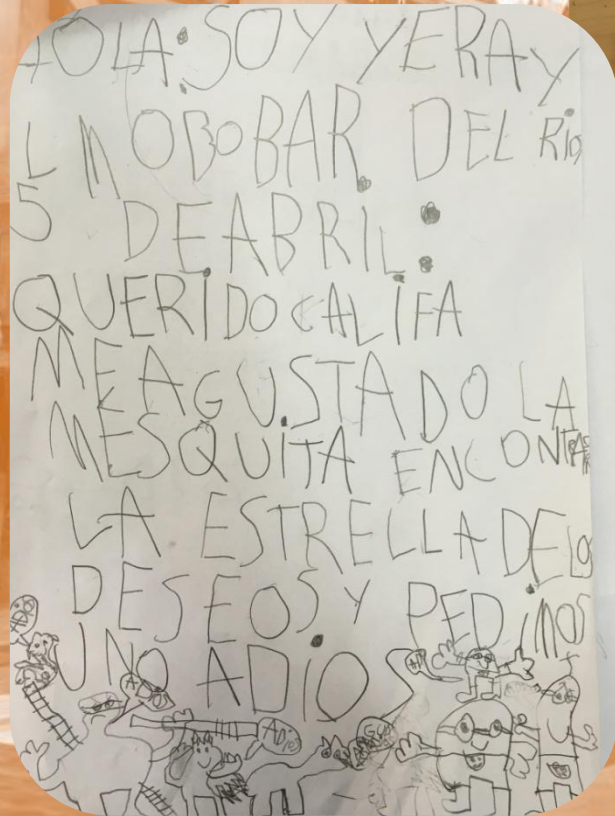 HOLA: SOY YERAY
L MOBOBAR DEL Río
5 DE ABRIL:
QUERIDO CALIFA
ME A GUSTADO LA
MESQUITA ENCONTAR
LA ESTRELLA DE LOS
DESEOS Y PEDIMOS
UNO ADIOS
ADIO